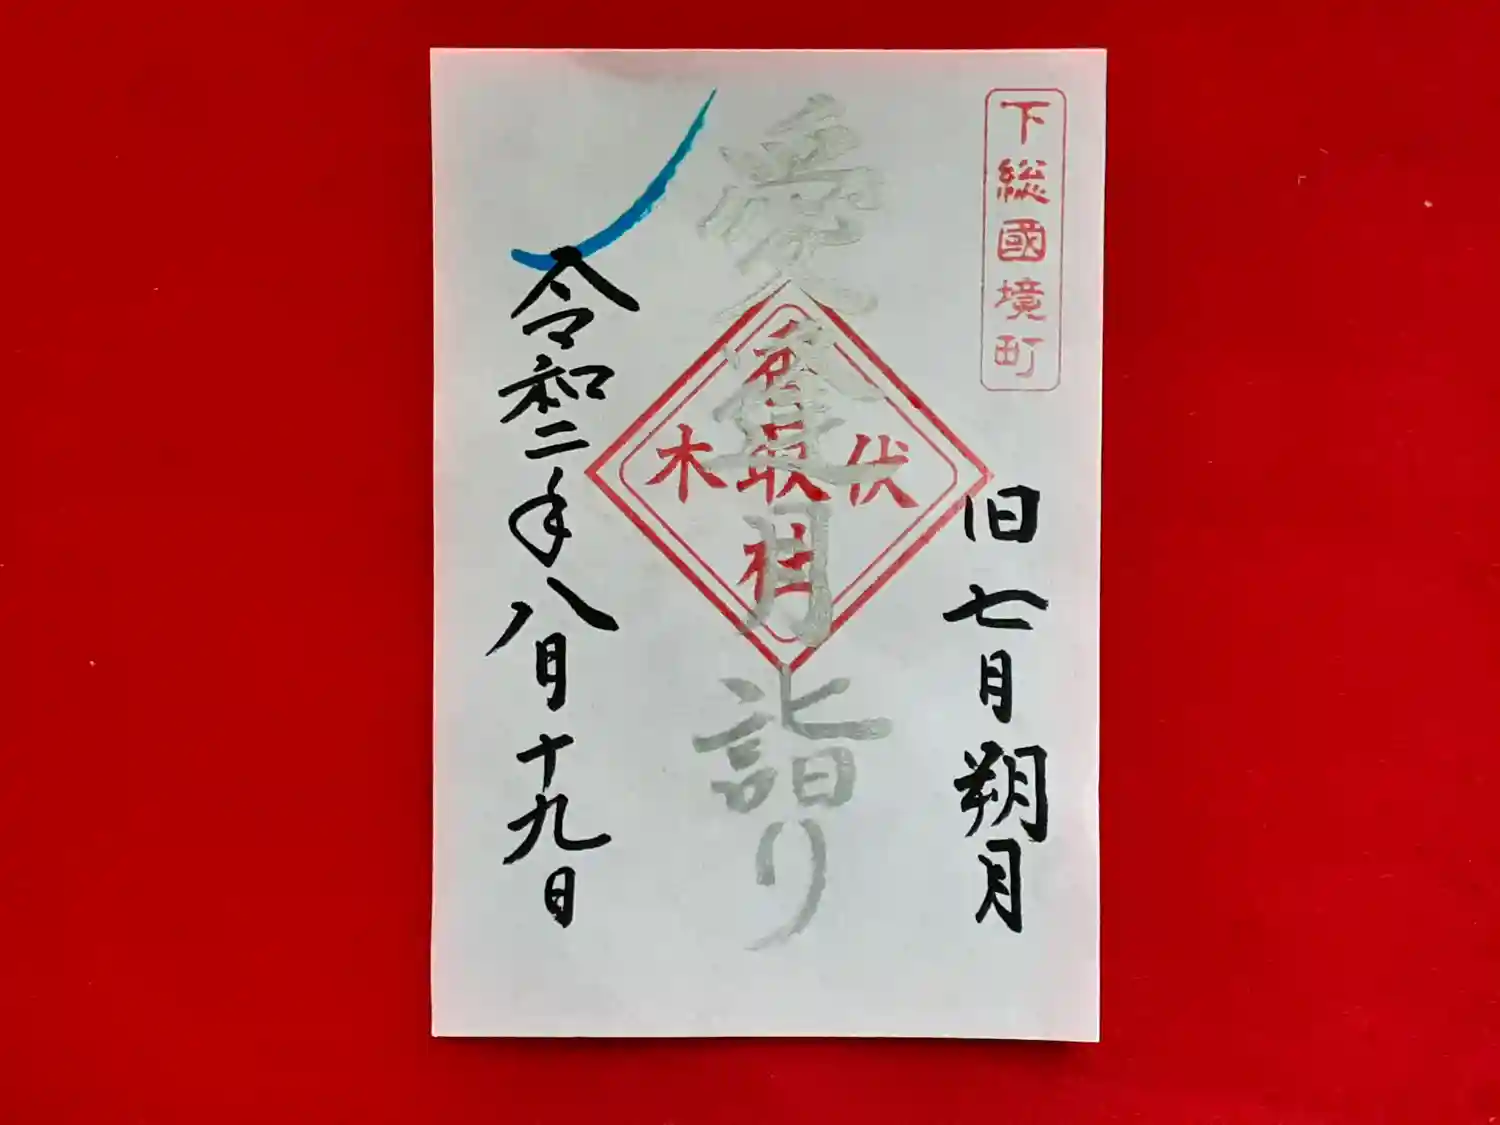 下総國境町
旧七月朔月
愛逢月詣り
伏木
香取社
令和二年八月十九日